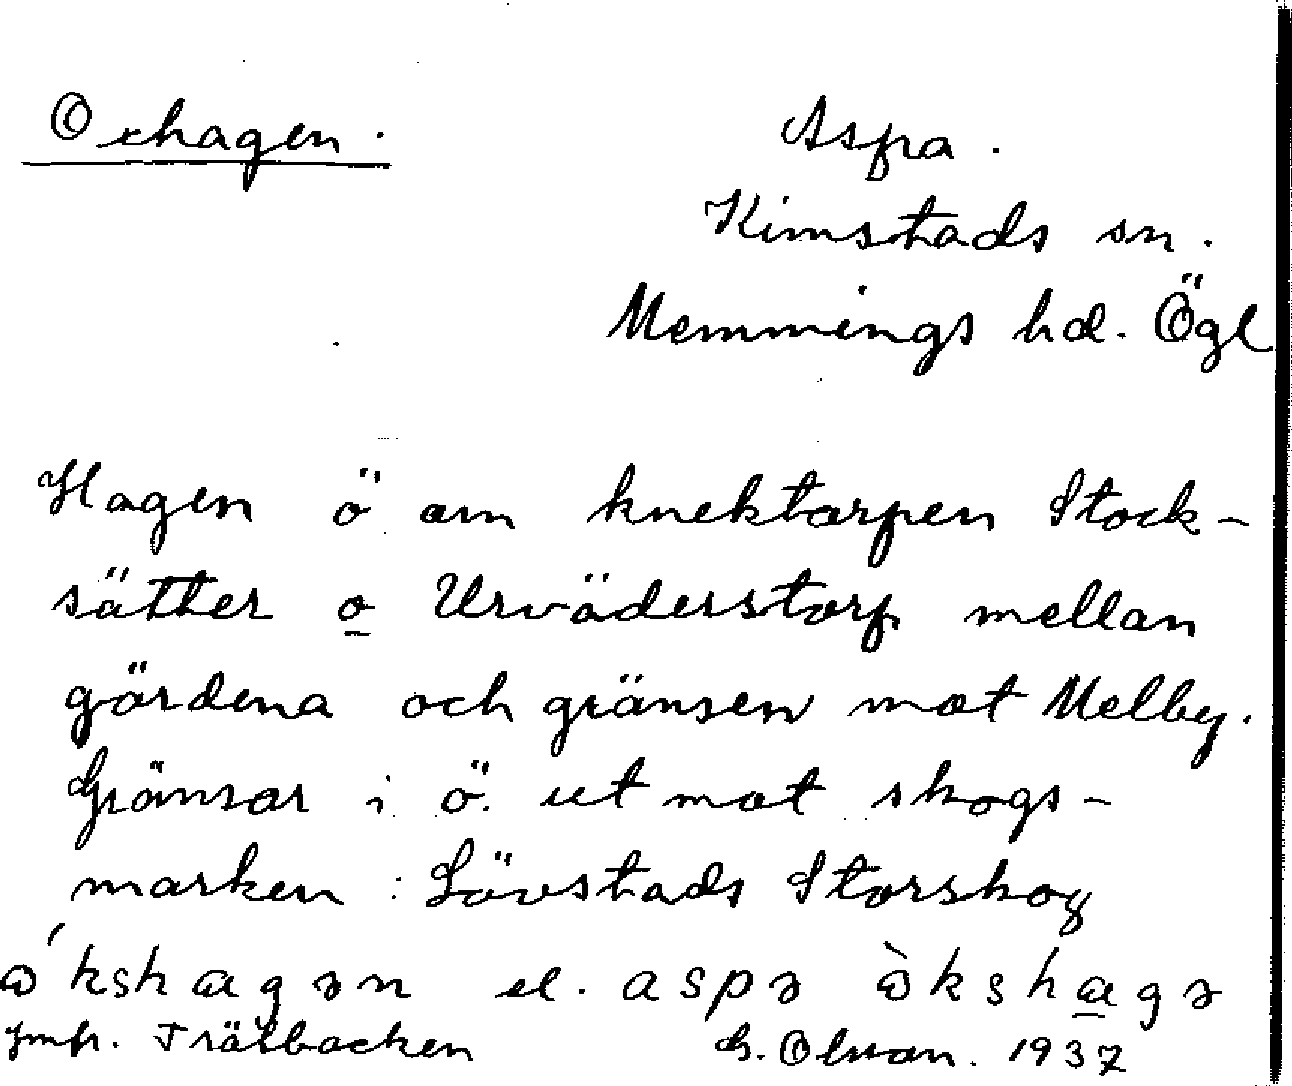 Oxhagen.
Aspa.
Kimstads sn.
Memmings hd. Ögl
Hagen ö om knektorpen Stock-
sätter o Urväderstorp mellan
gärdena och gränsen mot Melby.
Gränsar i ö. ut mot skogs-
marken: Lövstads Storskog
ɷ́kshagən el. aspə ɷ̀kshagə
Jmfr. Trälbacken G. Olson. 1937